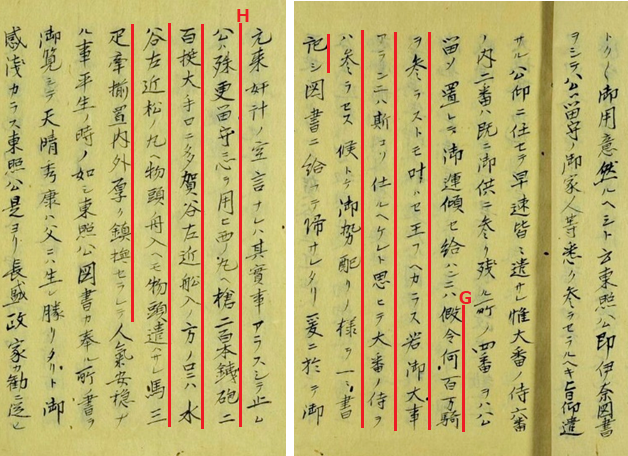 トク〱御用意然ルヘシト方東照公即伊奈図書
ヲシテ公ノ留守ノ御家人等悉ク参ラセラルヘキ旨仰遣
サル公仰ニ任セテ早速皆ニ遣サレ惟大番ノ侍六番
ノ内二番ハ既ニ御供ニ参リ残ル所ノ四番ヲハ公
G
留ソ置レシ御運傾セ給ハンニハ假令何百万騎
ヲ参ラストモ叶ハセ玉フヘカラス若御大事
アランニハ斯コソ仕ルヘケレト思ヒテ大番ノ侍ヲ
ハ参ラセス候トテ御勢配リノ様ヲ一々書
記シ図書ニ給ハテ帰サレタリ爰ニ於テ御
元来奸計ノ空言ナレハ其實事アラスシテ止ム
H
公ハ殊更留守ニ心ヲ用ヒ西ノ丸ヘ槍二百本鉄砲二
百挺大手口ニ多賀谷左近船入ノ方ノ口ニハ水
谷左近松ノ丸ヘ物頭舟入ヘモ物頭遣サレ馬三
疋牽揃置内外厚ク鎮撫セラレテ人氣安穏ナ
ル事平生ノ時ノ如シ東照公図書カ奉ル所ノ書ヲ
御覧シテ天晴秀康ハ父ニハ生レ勝リタリト御
感浅カラス東照公是ヨリ長盛政家カ勧ニ